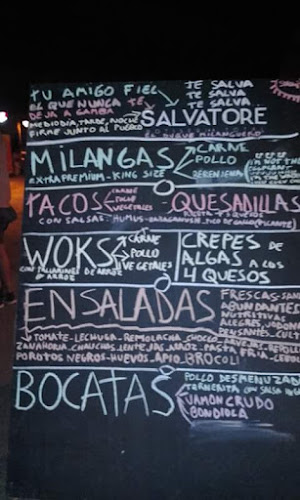 TU AMIGO FIEL
EL QUE NUNCA TE
DEJA A GAMBA
MEDIODIA, TARDE, NOCHE
FIRME JUNTO AL PUEBLO
TE SALVA
TE SALVA
TE SALVA
SALVATORE
EL DUQUE MILANGUERO
MILANGAS
EXTRA PREMIUM - KING SIZE
CARNE
POLLO
BERENJENA
TACOS
CARNE
POLLO
VEGETALES
QUESADILLAS
CON SALSAS: HUMUS-
(PICANTE)
WOKS
CARNE
POLLO
VEGETALES
CON TALLARINES DE ARROZ
O ARROZ
CREPES DE
ALGAS A LOS
4 QUESOS
ENSALADAS
FRESCAS-
ABUNDANTES
NUTRITIVAS
ALEGRES,
TOMATE-LECHUGA-REMOLACHA-CHOCLO-ARVEJAS-
ZANAHORIA-CHAUCHAS-LENTEJAS-ARROZ-PASTA FRIA-
POROTOS NEGROS-HUEVOS-APIO-BROCOLI
BOCATAS
POLLO DESMENUZAD
TERNERITA CON SALSA
JAMON CRUDO
BONDIOLA